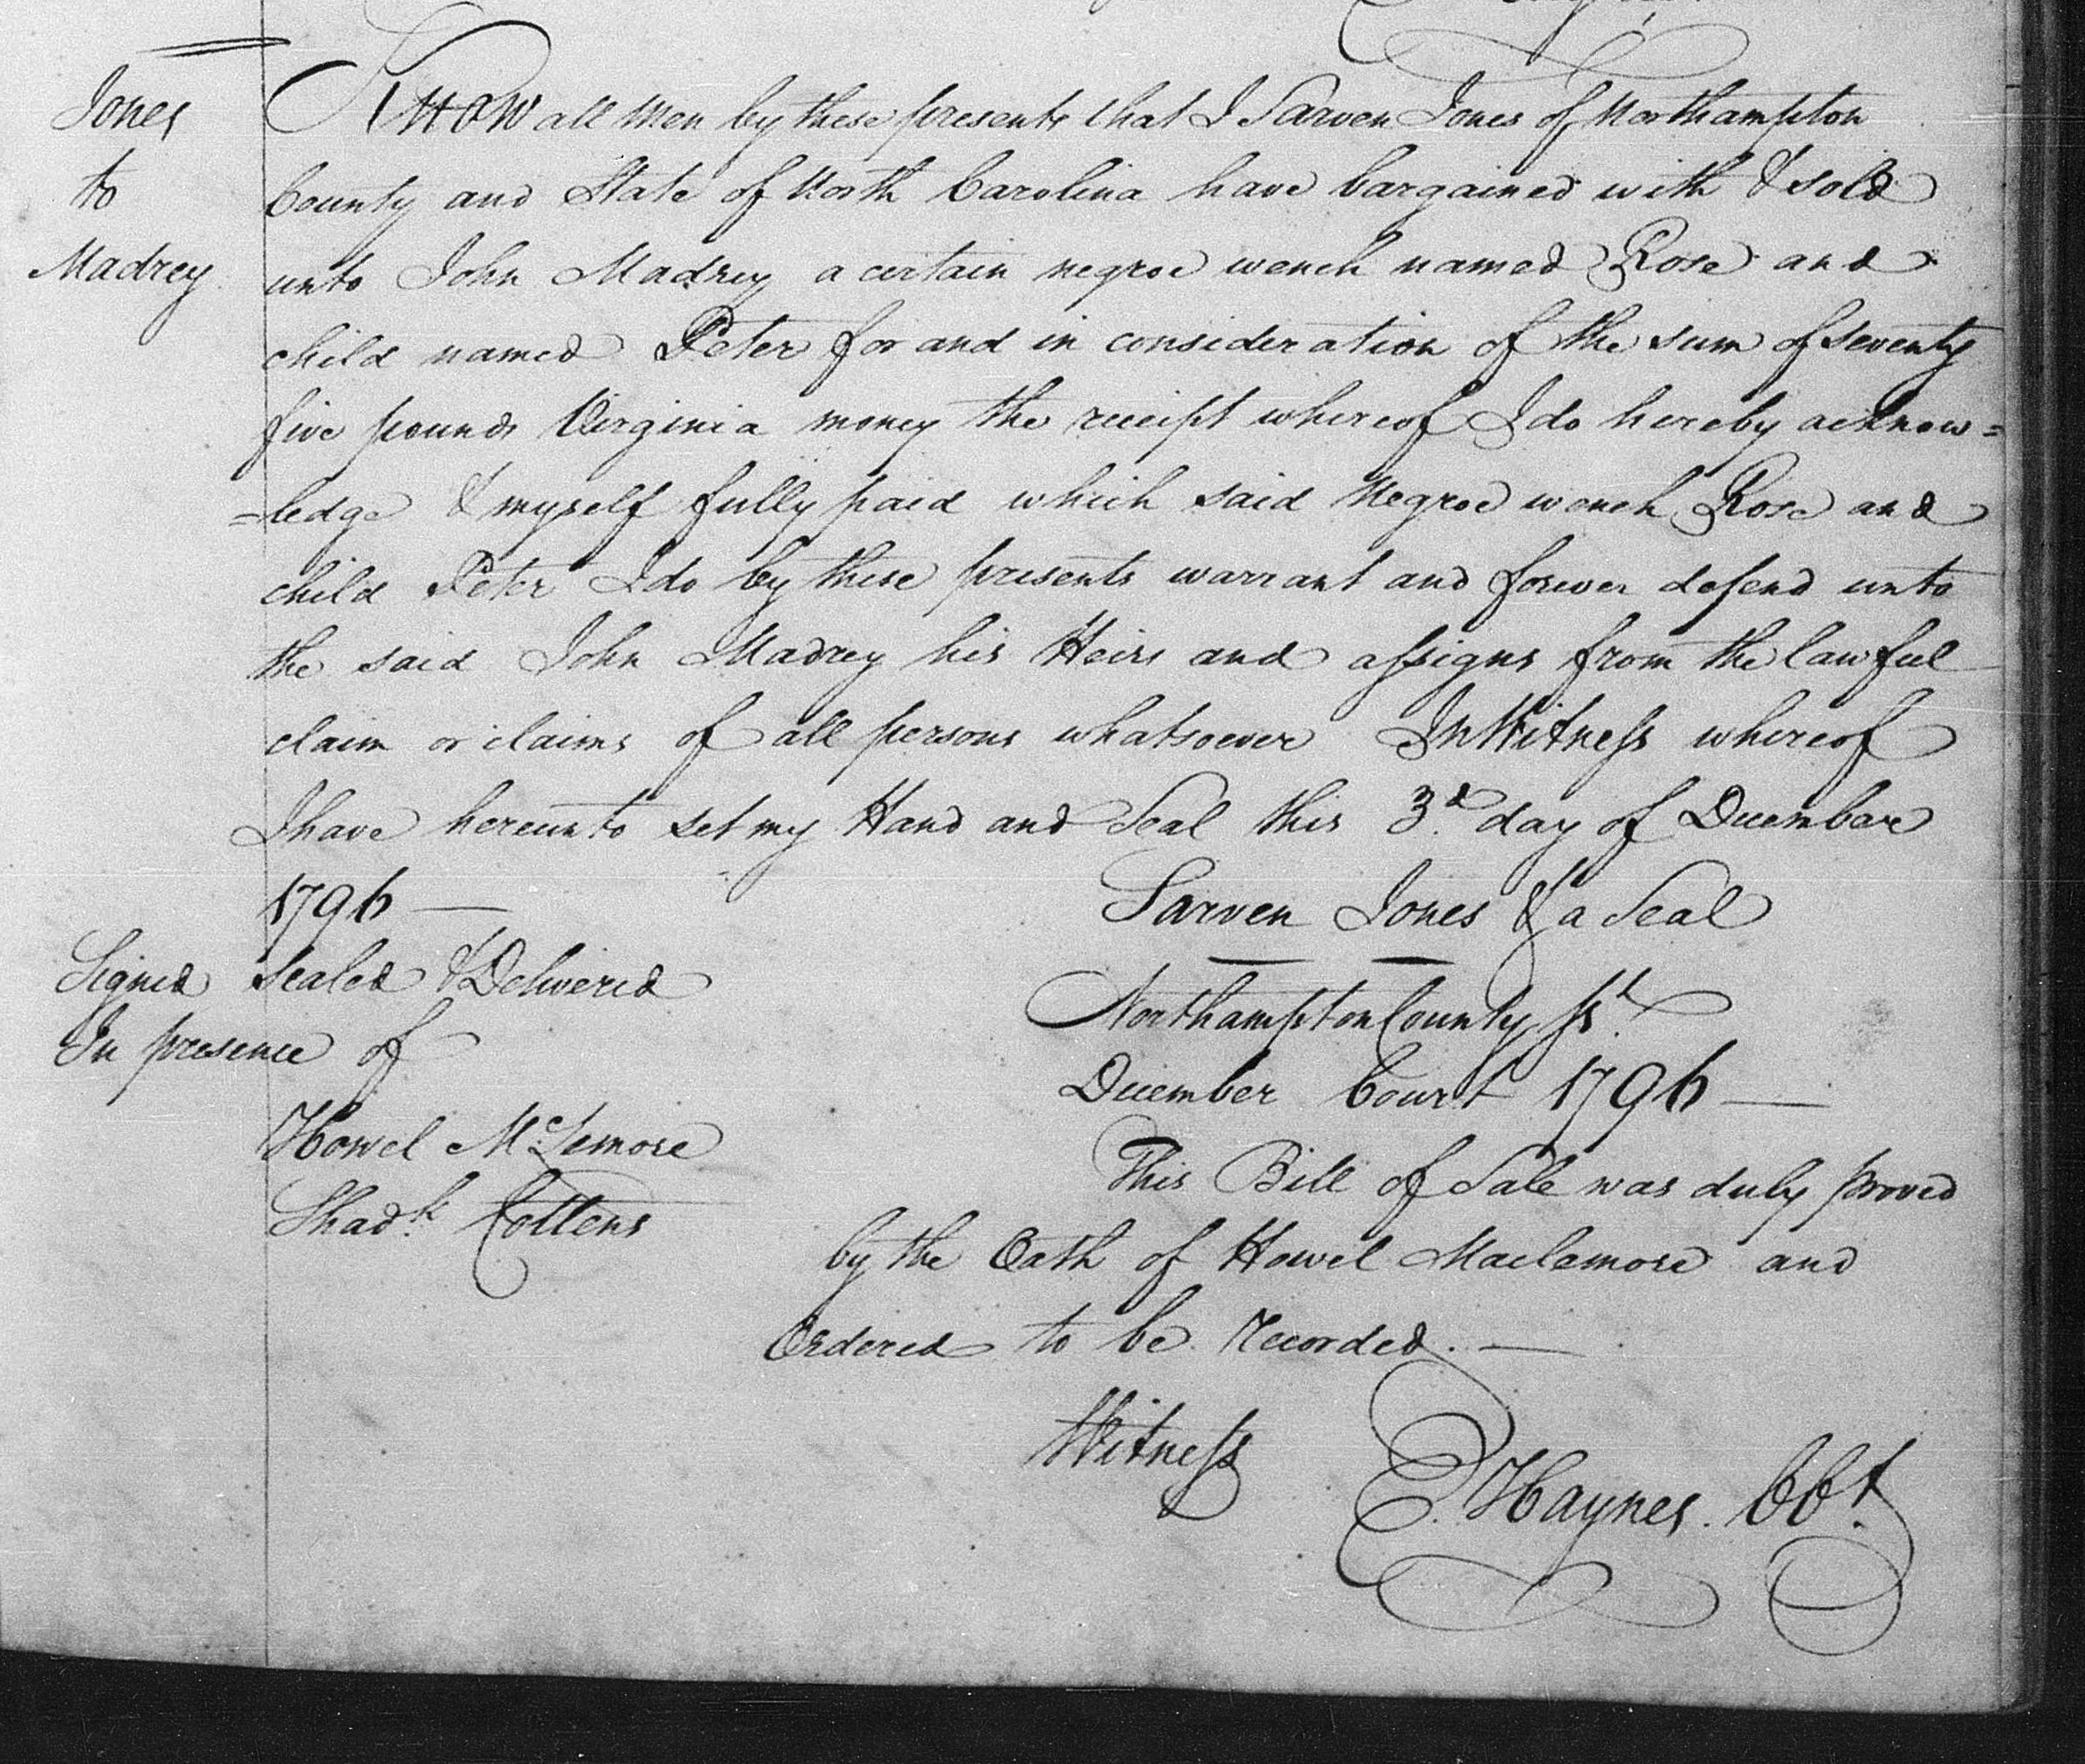 Jones
to
Madrey
Know all Men by these presents that I Sarven Jones of Northampton
County and State of North Carolina have bargained with & sold
unto John Madrey a certain negroe wench named Rose and
child named Peter for and in consideration of the sum of seventy
five pounds Virginia money the receipt whereof I do hereby acknow=
=ledge & myself fully paid which said Negroe wench Rose and
child Peter I do by these presents warrant and forever defend unto
the said John Madrey his Heirs and assigns from the lawful
claim or claims of all persons whatsoever In Witness whereof
I have hereunto set my Hand and Seal this 3d. day of December
1796 —
Sarven Jones & a Seal
Signed Sealed & Delivered
In presence of
Howel McLemore
Shadk. Cottens
Northampton County Sst.
December Court 1796 —
This Bill of Sale was duly proved
by the Oath of Howel Maclemore and
Ordered to be Recorded. —
Witness
E. Haynes. CCt.